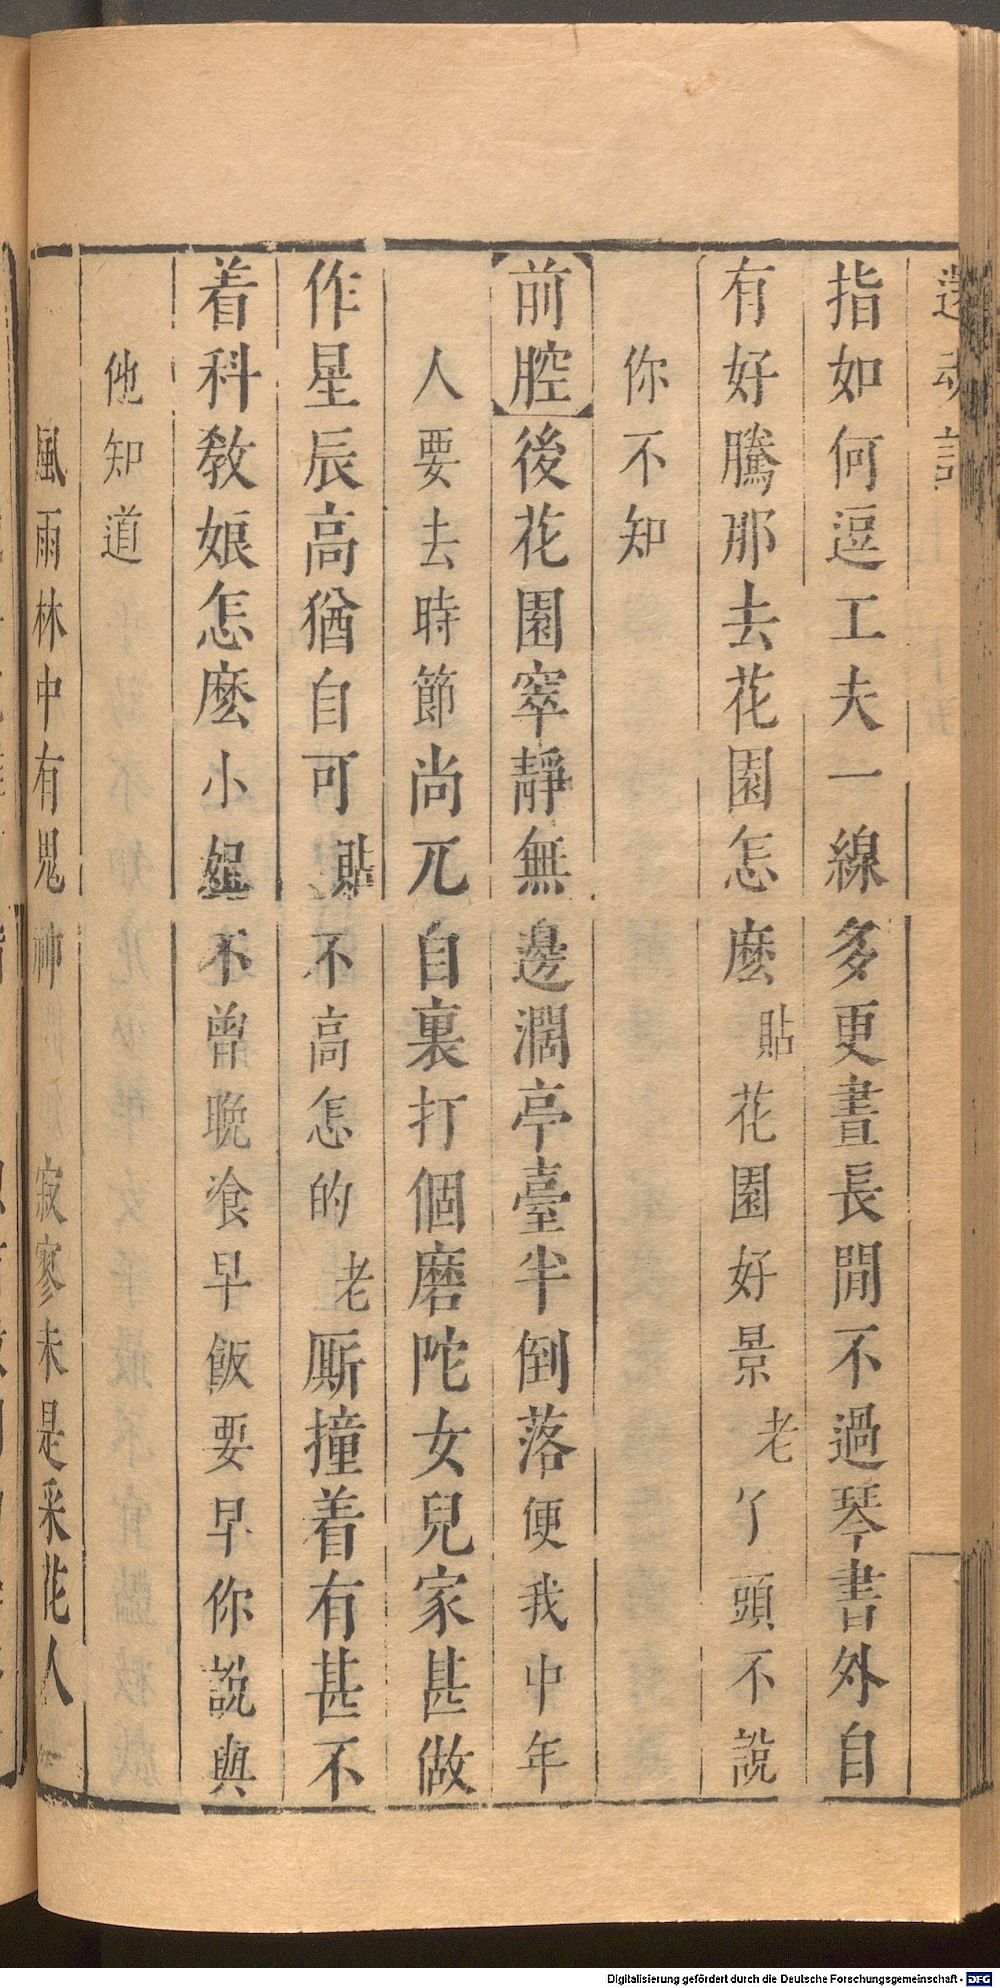 還魂記
指如何逗工夫一線多更晝長閒不過琴書外自
有好騰那去花園怎麽貼花園好景老丫頭不說
你不知
前腔後花園窣靜無邊濶亭臺半倒落便我中年
人要去時節尚兀自裏打個磨陀女兒家甚做
作星辰高猶自可貼不高怎的老厮撞着有甚不
着科教娘怎麽小姐不曾晚飡早飯要早你說與
他知道
風雨林中有鬼神 寂寥未是采花人
Digitalisierung gefördert durch die Deutsche Forschungsgemeinschaft - DFG